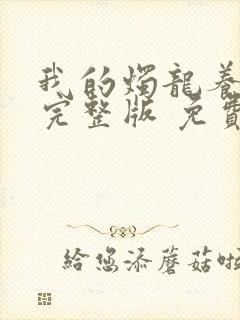 我的燭龍養
完整版 免費
給您添蘑菇啦